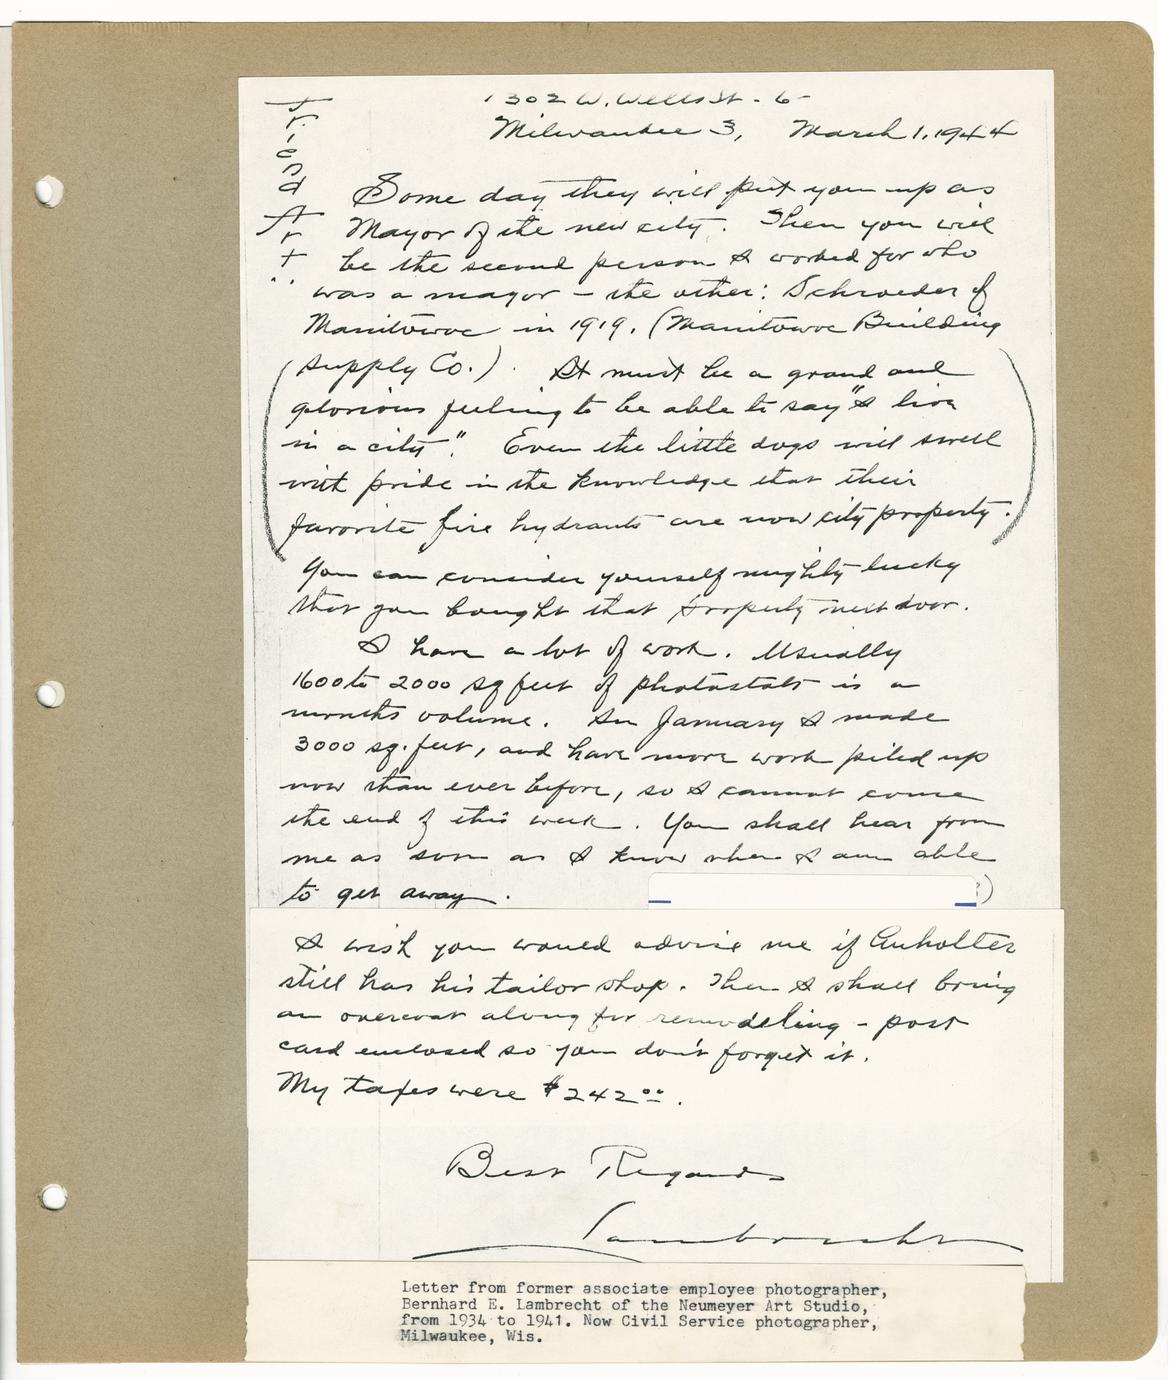 1302 W. Wells St. - 6
Milwaukee 3, March 1, 1944
Friend
Art
: 
Some day they will put you up as
Mayor of the new city. Then you will
be the second person I worked for who
was a mayor - the other: Schroeder of
Manitowoc in 1919. (Manitowoc Building
Supply Co.). It must be a grand and
glorious feeling to be able to say "I live
in a city". Even the little dogs will swell
with pride in the knowledge that their
favorite fire hydrants are now city property.
You can consider yourself mighty lucky
that you bought that property next door.
I have a lot of work. Usually
1600 to 2000 sq feet of photostats is a
months volume. In January I made
3000 sq. feet, and have more work piled up
now than ever before, so I cannot come
the end of this week. You shall hear from
me as soon as I know when I am able
to get away. )
I wish you would advise me if Anholter
still has his tailor shop. Then I shall bring
an overcoat along for remodeling - post
card enclosed so you don't forget it.
My taxes were $242.00.
Best Regards
Lambrecht
Letter from former associate employee photographer,
Bernhard E. Lambrecht of the Neumeyer Art Studio,
from 1934 to 1941. Now Civil Service photographer,
Milwaukee, Wis.